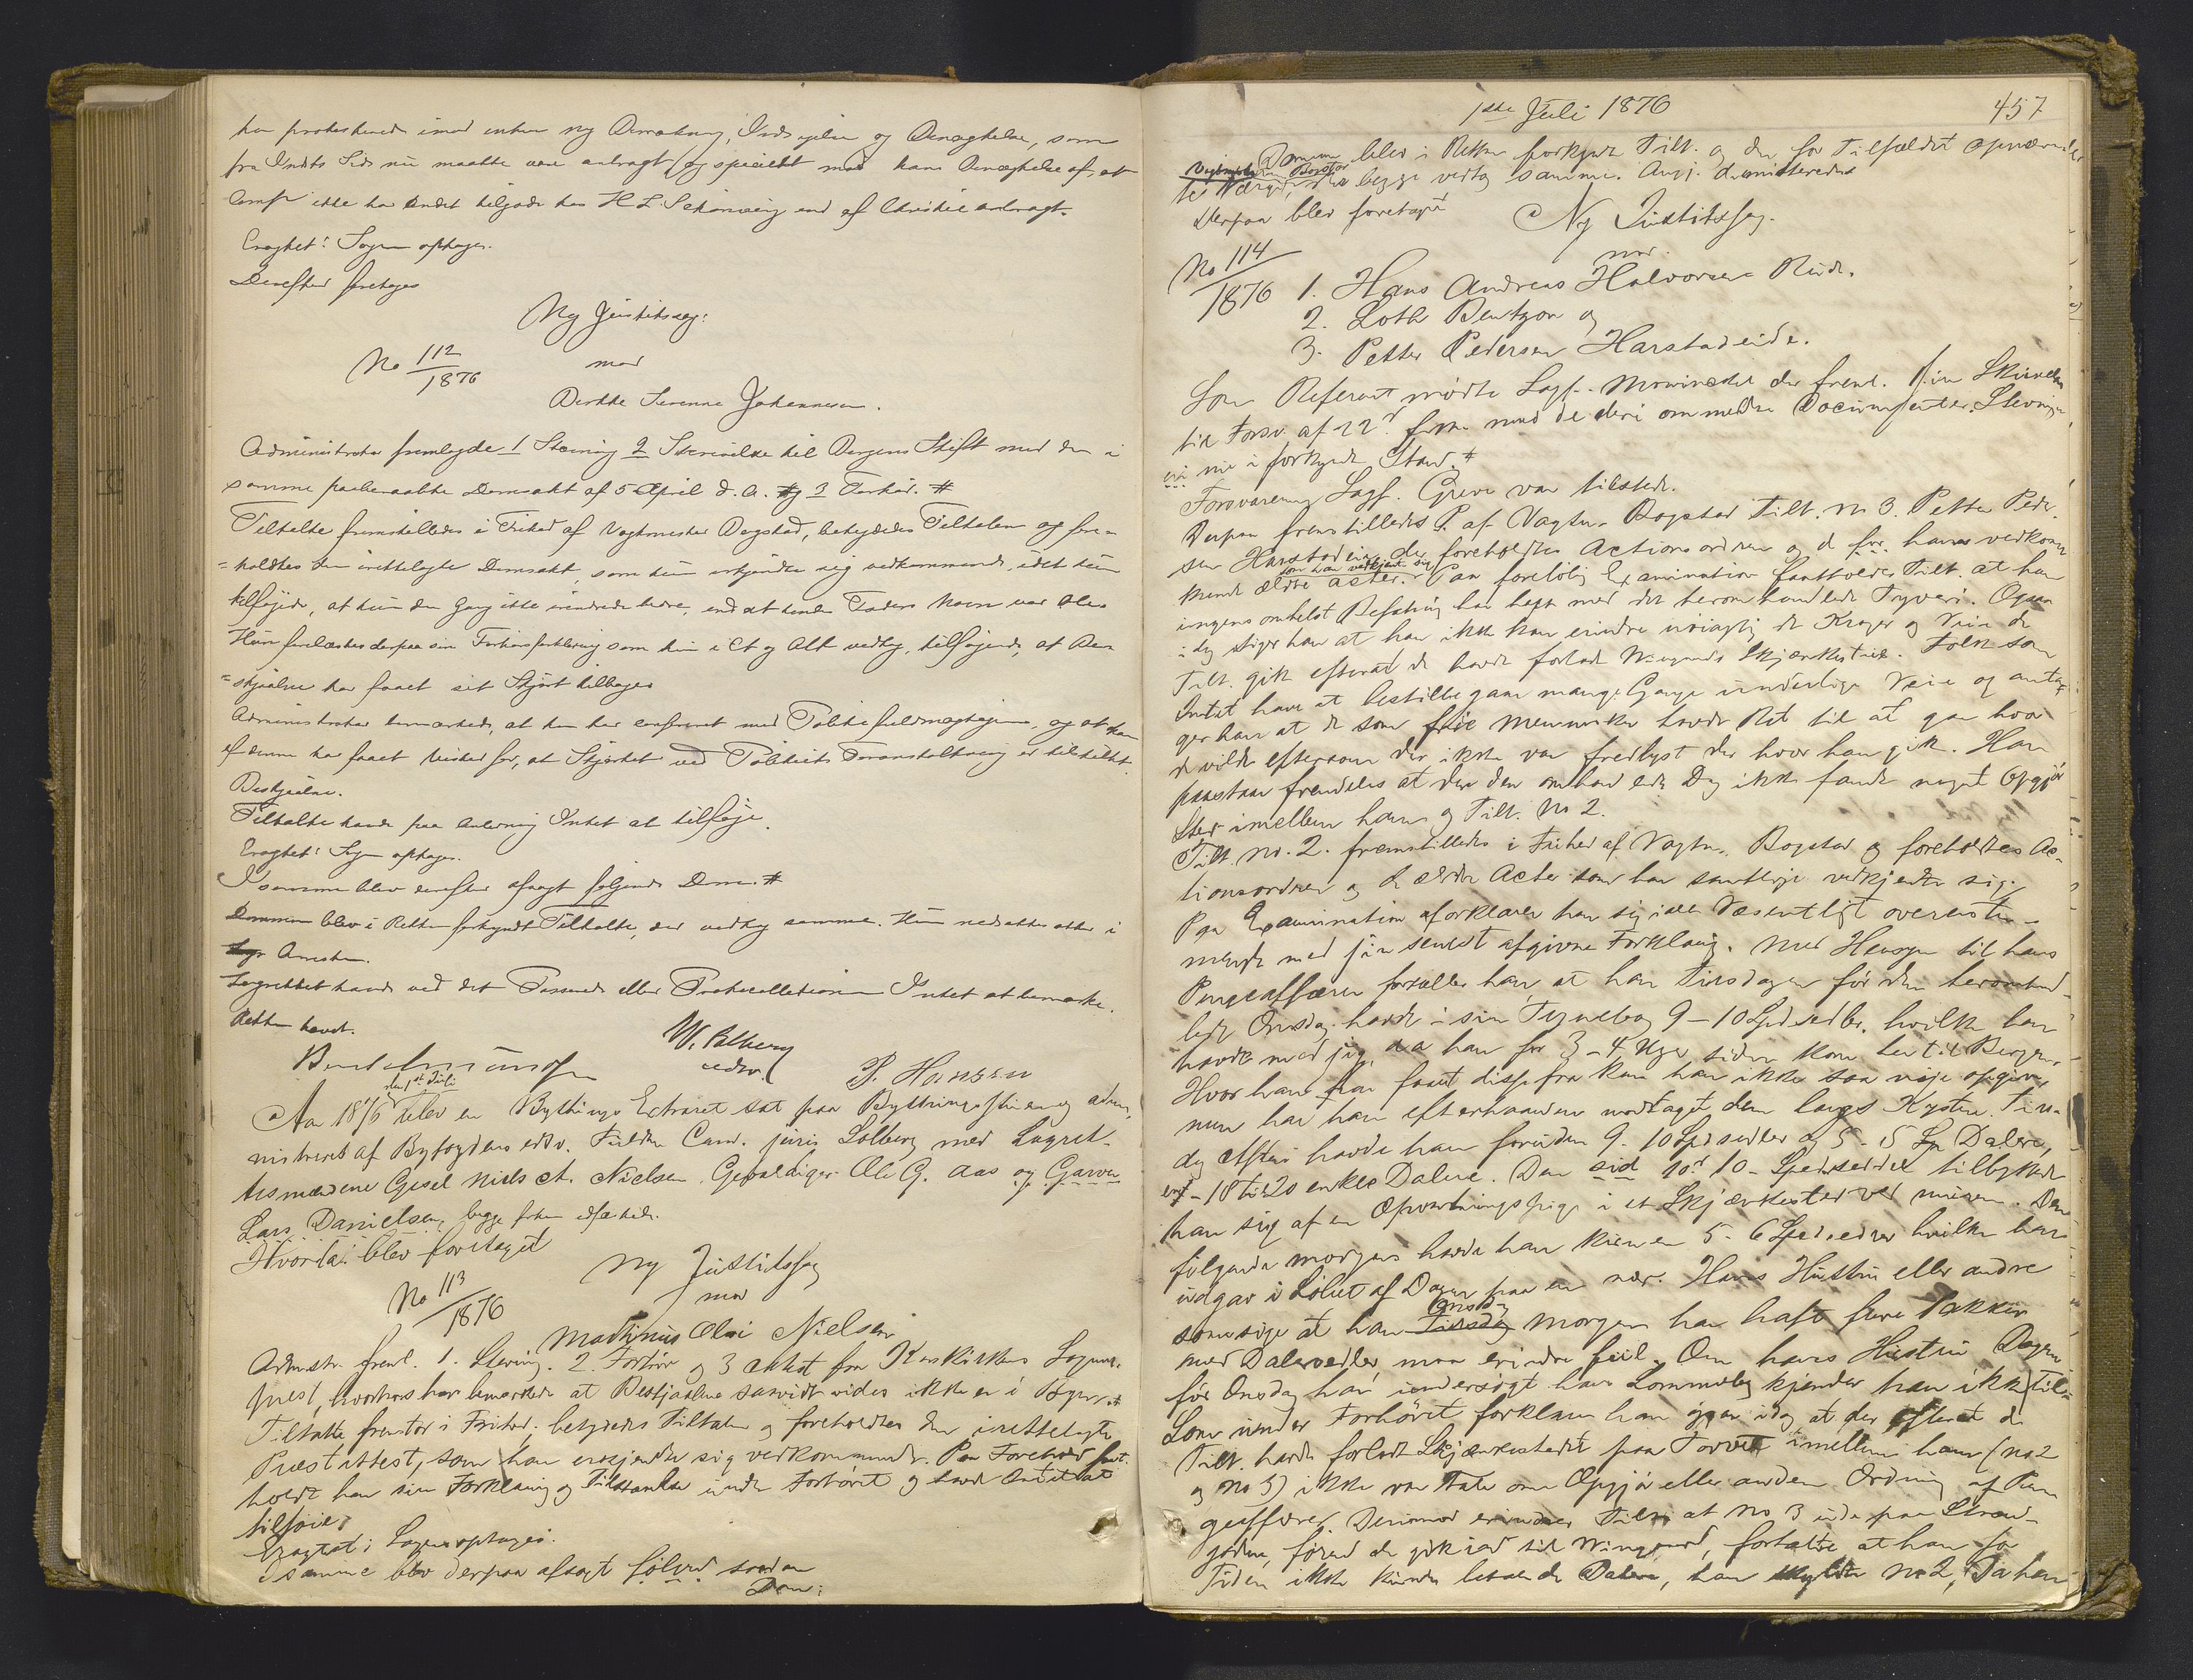 har protesteret imod enhver ny Bemærkning, Indsigelse og Benægtelse, som
fra Indsts Side nu maatte være anbragt og specielt mod hans Benægtelse af, at
ikke har andet tilgode hos H. L. end af Christie anbragt.
Eragtet: Sagen optages.
Derefter foretoges
Ny Justitssag:
No 112/1876 mod
Berthe Serenne Johannesen.
Administrator fremlagde 1 Stevning 2 Skrivelse til Bergens Stift med den i
samme paaberaabte Domsakt af 5 April d. A. og 3 Forhør. #
Tiltalte fremstilledes i Frihed af Vagtmester Bogstad, betydedes Tiltalen og fore-
= holdtes den irettelagte Domsakt, som hun erkjendte sig vedkommende, idet hun
tilføjede, at hun den Gang ikke erindrede bedre, end at hendes Faders Navn var Ole.
Hun forelæstes derpaa sin Forhørsforklaring som hun i Et og Alt vedtog, tilføjende, at Be-
= stjaalne har faaet sit Skjørt tilbage.
Administrator bemærkede, at han har confereret med Politifuldmægtigen, og at han
af denne har faaet Vished for, at Skjørtet ved Politiets Foranstaltning er tilstillet
Bestjaalne.
Tiltalte havde paa Anledning Intet at tilføje.
Eragtet: Sagen optages.
I samme blev derefter afsagt følgende Dom. #
Dommen blev i Retten forkyndt Tiltalte, der vedtog samme. Hun nedsattes atter i
Arresten.
Lagrettet havde ved det Passerede eller Protocollationen Intet at bemærke.
Retten hævet.
P. Hansen
Aar 1876 den 1ste Juli blev en Bythings Extraret sat paa Bythingsstuen og admi-
nistreret af Byfogdens edsv. Fuldm. Cand. juris Solberg med Lagret-
tesmændene Gesel Niels A. Nielsen Gevaldiger Ole G. Aas og Garver
Lars Danielsen, begge forhen edfæstede.
Hvorda blev foretaget
Ny Justitssag
No 113/1876 mod
Mathinus Olai Nielsen
Admstr. freml. 1. Stevning. 2. Forhør og 3 Attest fra Korskirkens Sogne-
prest, hvorhos han bemærkede at Bestjaalne saavidt vides ikke er i Byen. #
Tiltalte fremstod i Frihed, betydedes Tiltalen og foreholdtes den irettelagte
Præsteattest, som han erkjendte sig vedkommende. Paa Forehold fast-
holdt han sin Forklaring og Tilstaaelse under Forhøret og havde Intet at
tilføie.
Eragtet: Sagen optages.
I samme blev derpaa afsagt følgend saadan
Dom:
1ste Juli 1876 457
Dommen blev i Retten forkyndt Tilt. og den for Tilfældet opnævnte
Værge, der begge vedtog samme. Angj. dimitteredes
Derpaa blev foretaget Ny Justitssag.
No 114/1876 mod
1. Hans Andreas Halvorsen Rud.
2. Loth Bentzon og
3. Petter Pedersen Harstadeide.
Som Referent mødte Sagf. Mowinckel der freml. sin Skrivelse
til Forsv. af 22d f. m. med de deri ommeldte Documenter. Stevningen
er nu i forkyndt Stand. #
Forsvareren Sagf. Greve var tilstede.
Derpaa fremstilledes af Vagtm. Bogstad Tilt. No 3. Petter Peder-
sen Harstadeide, der foreholdtes Actionsordren og d for hans vedkom-
mende ældre Acter som han vedkjendte sig. Paa foreløbig Examination fastholder Tilt. at han
ingensomhelst Befatning har havt med det heromhandlede Tyveri. Ogsaa
i dag siger han at han ikke kan erindre nøiagtig de Kroger og Veie de
Tilt. gik efterat de havde forladt Wingaards Skjænkested. Folk som
Intet have at bestille gaar mange Gange underlige Veie og anta-
ger han at de som frie Mennesker havde Ret til at gaa hvor
de vilde eftersom der ikke var fredlyst der hvor han gik. Han
paastaar fremdeles at der den omhandlede Dag ikke fandt noget Opgjør
Sted imellem ham og Tilt. No 2.
Tilt. No. 2. fremstilledes i Frihed af Vagtm. Bogstad og foreholdtes Ac-
tionsordren og de ældre Acter som han samtlige vedkjendte sig.
Paa Examination forklarer han sig i det Væsentligt overenstem-
mende med sin senest afgivne Forklaring. Med Hensyn til hans
Pengeaffærer fortæller han, at han Tirsdagen før den heromhand-
lede Onsdag havde i sin Tegnebog 9-10 Spdsedler, hvilke han
havde med sig, da han for 3-4 Uger siden kom her til Bergen.
Hvor han har faaet disse fra kan han ikke saa nøje opgive,
men har han efterhaanden modtaget dem langs Kysten. Tirs-
dag Aften havde han foruden 9-10 Spdsedler og 5-5 Sp Dalere,
10 til 20 enkle Dalere. Den sid 10d 10-Spdseddel tilbyttede
han sig af en Opvartningspige i et Skjænkested ved muren. Den
følgende morgen havde han kun en 5-6 Spdsedler hvilke han
udgav i Løbet af Dagen paa en nær. Hans Hustru eller andre
som sige at han Onsdag Morgen har haft flere Pakker
med Dalersedler maa erindre feil. Om hans Hustru Dagen
før Onsdag har undersøgt hans Lommebog kjender han ikke til.
Som under Forhøret forklarer han ogsaa idag at der efterat de
Tilt. havde forladt Skjænkestedet paa Torvet imellem ham (No 2
og No 3) ikke var Tale om Opgjør eller anden Ordning af Pen-
geaffærer. Derimod erindrer Tilt. at No 3 ude paa Strand-
gaden, førend de gik ind til Wingaard, fortalte at han for
Tiden ikke kunde betale de Dalere, han skyldte No 2, Da han